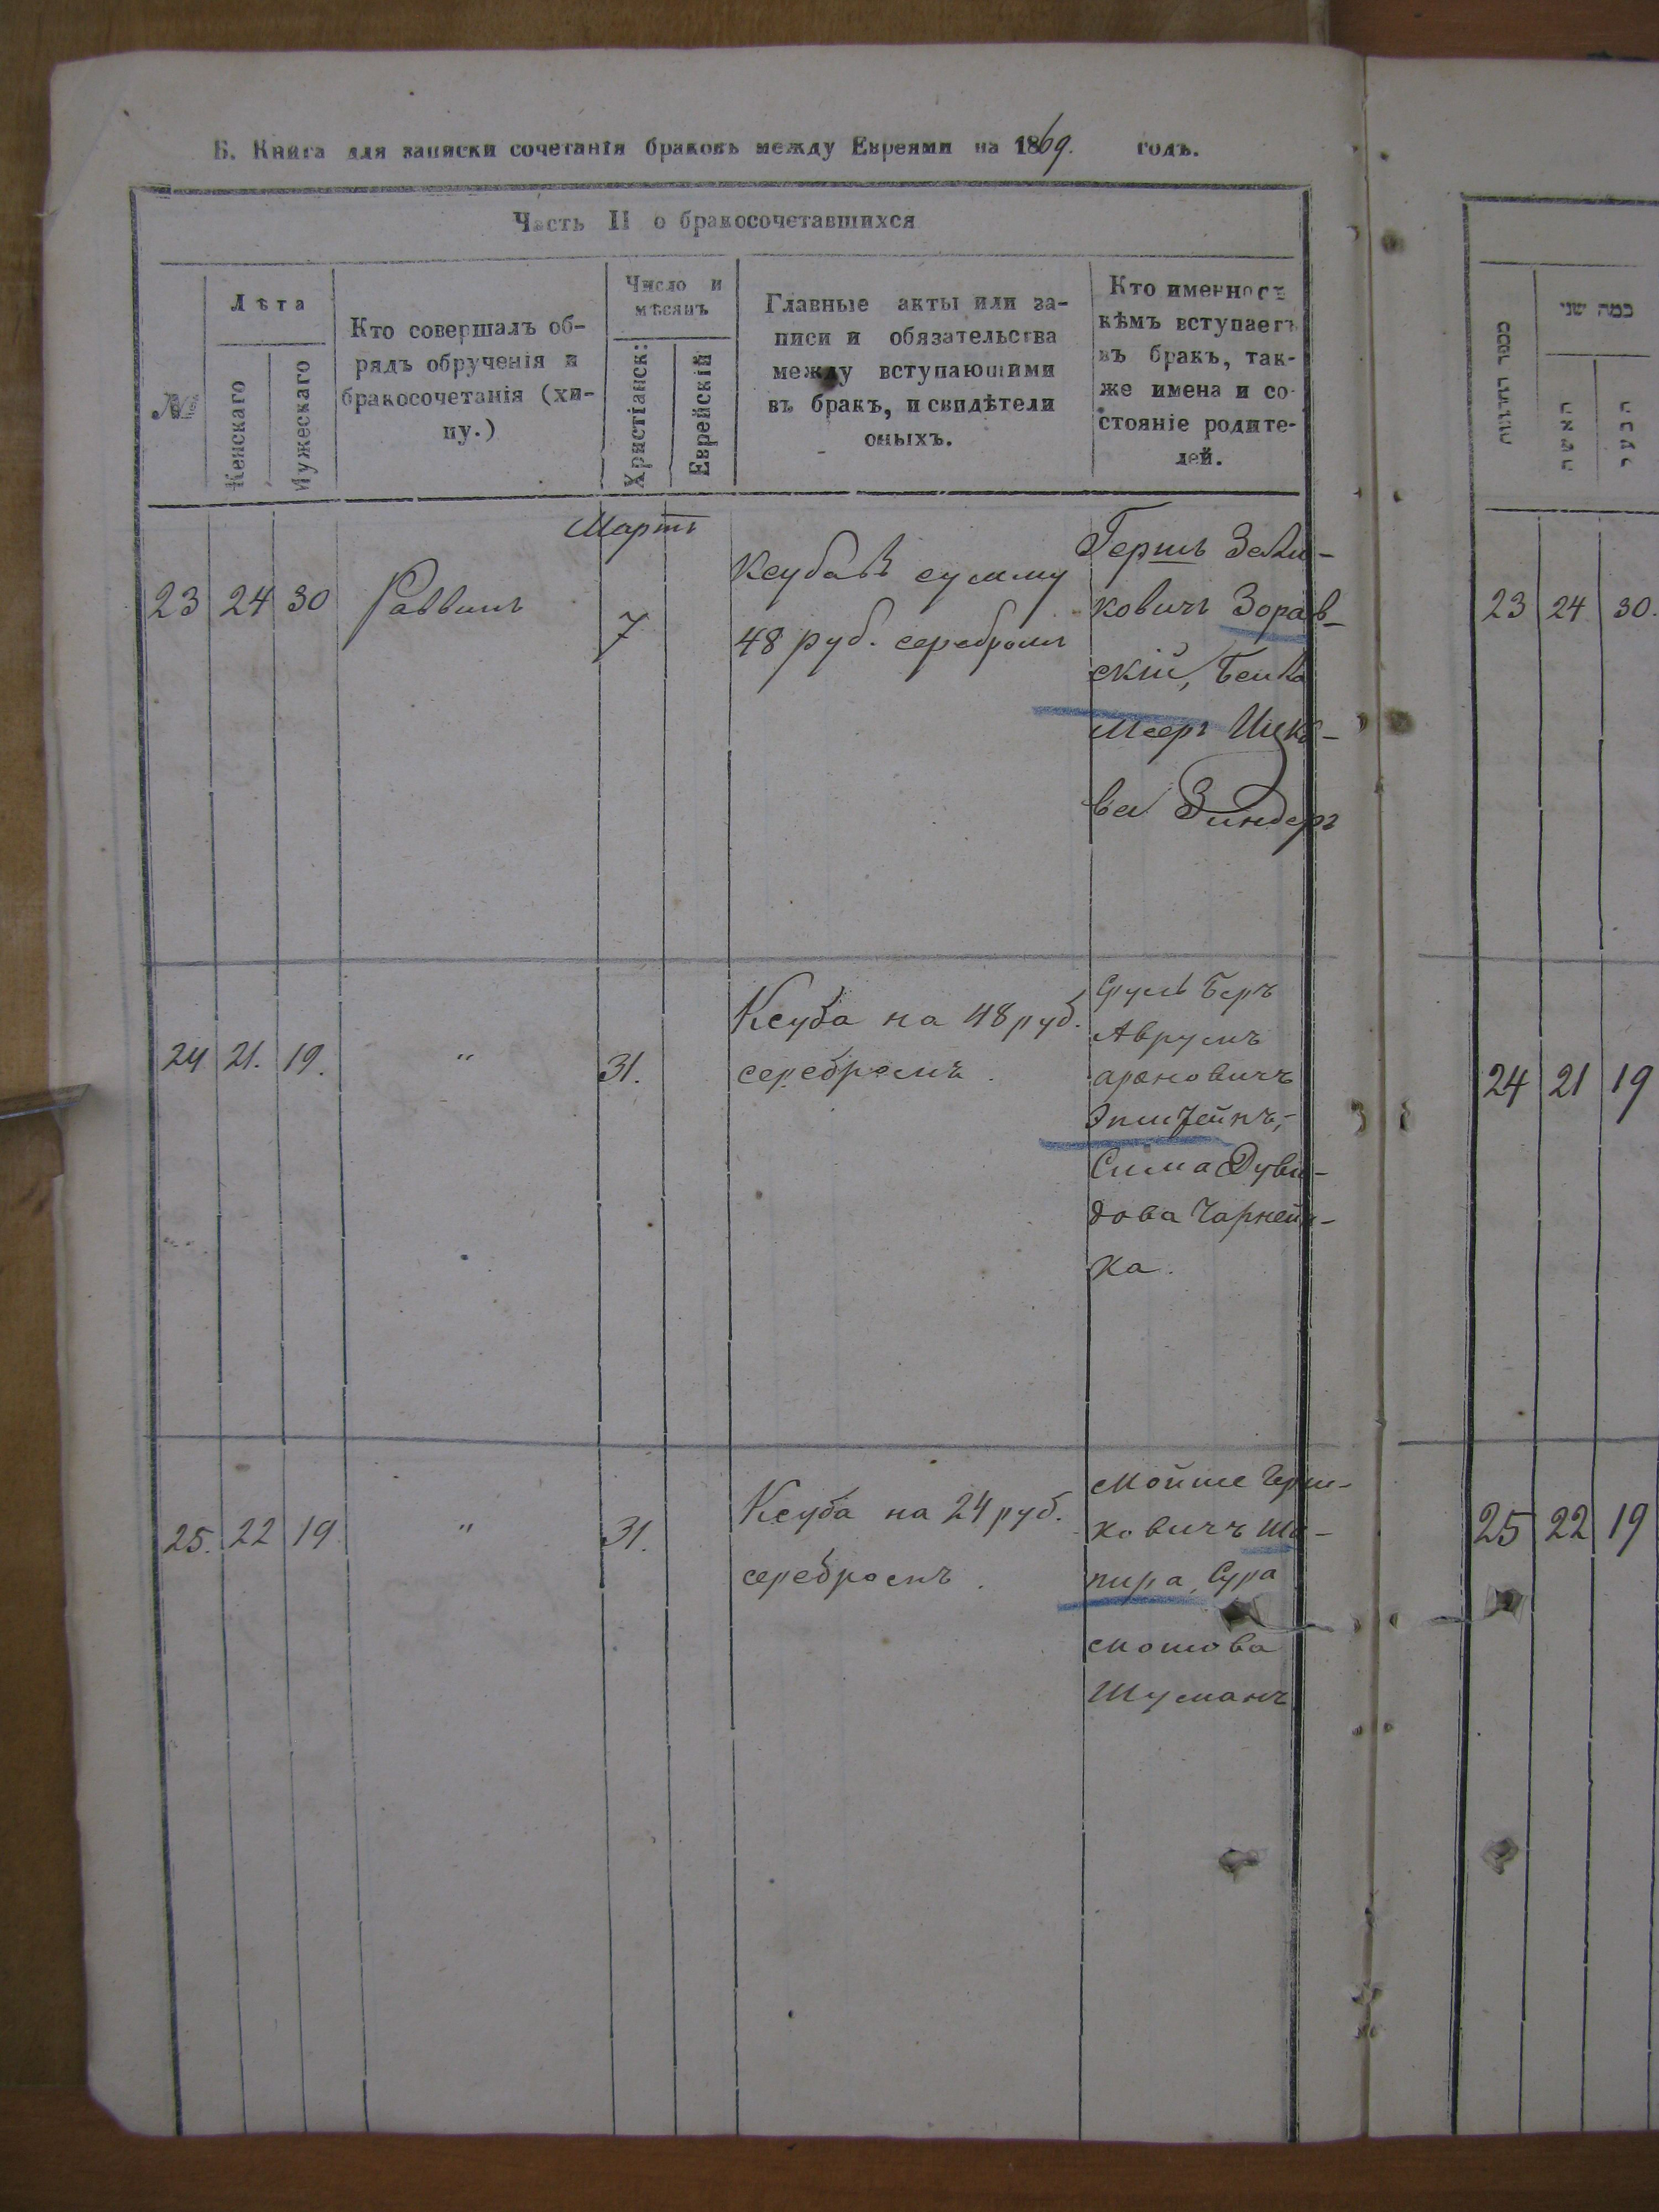 Б. Книга для записки сочетанія браковъ между Евреями на 1869. годъ.
Часть II о бракосочетавшихся
№
Лѣта
Женскаго
Мужескаго
Кто совершалъ об-
рядъ обрученія и
бракосочетанія (хи-
пу.)
Число и
мѣсяцъ
Христіанск:
Еврейскій
Главные акты или за-
писи и обязательства
между вступающими
въ бракъ, и свидѣтели
оныхъ.
Кто именно съ
кѣмъ вступаетъ
въ бракъ, так-
же имена и со-
стояніе родите-
лей.
Мартъ
23 24 30 Раввинъ 7
Ксуба въ сумму
48 руб. серебромъ
Гершъ Зели-
ковичъ Зорав-
скій, Бейла
Мееръ Ицко-
ва Зиндеръ
24 21. 19. " 31.
Ксуба на 48 руб.
серебромъ.
Сруль Беръ
Аврумъ
ароновичъ
Эпштейнъ,
Сима Дуви-
дова Чарнец-
ка.
25. 22 19 " 31.
Ксуба на 24 руб.
серебромъ.
Мойше Герш-
ковичъ Ша-
пира, Сура
Мошова
Шуманъ
כמה שני
האשה
הבעל
23 24 30.
24 21 19
25 22 19